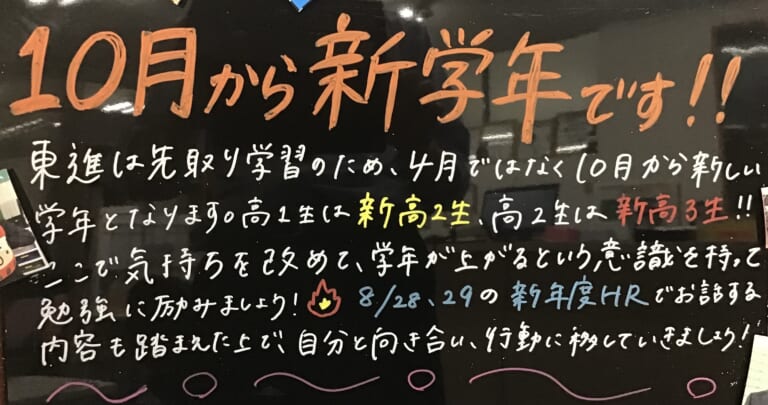 10月から新学年です!!
東進は先取り学習のため、4月ではなく10月から新しい
学年となります。高1生は新高2生、高2生は新高3生!!
ここで気持ちを改めて、学年が上がるという意識を持って
勉強に励みましょう! 8/28、29の新年度HRでお話する
内容も踏まえた上で、自分と向き合い、行動に移していきましょう!